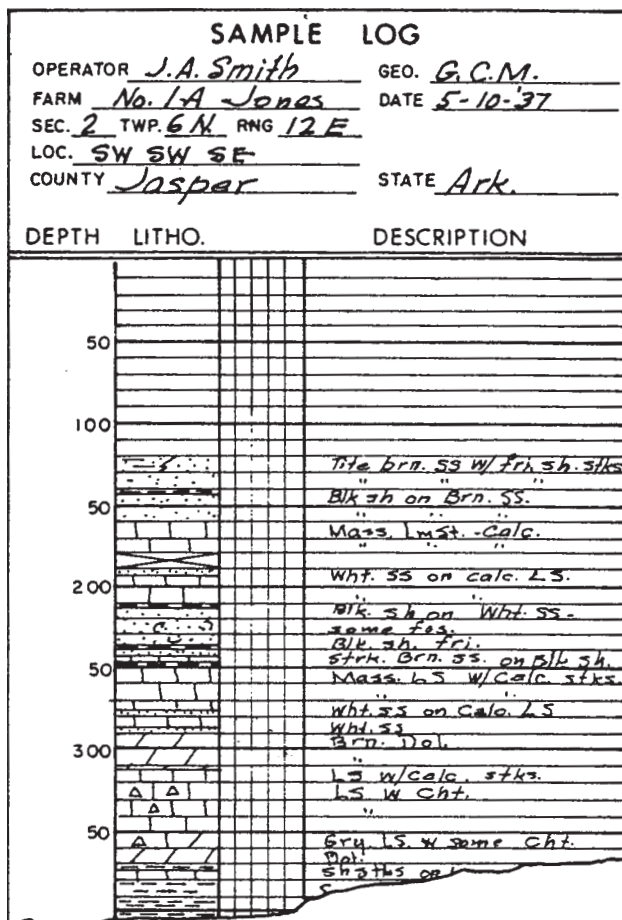 SAMPLE LOG
OPERATOR J.A. Smith GEO. G.C.M.
FARM No. 1-A Jones DATE 5-10-'37
SEC. 2 TWP. 6 N. RNG 12 E
LOC. SW SW SE
COUNTY Jasper STATE Ark.
DEPTH LITHO. DESCRIPTION
50
100
Tite brn. SS w/ fri. sh. stks
" " "
Blk sh on Brn. SS.
50 " " "
Mass. Lmst. -Calc.
" " "
Wht. SS on calc. LS.
200 " "
Blk. sh on Wht. SS-
some fos.
Blk. sh. fri.
Strk. Brn. ss. on Blk sh.
50
Mass. LS w/Calc. stks.
" "
Wht. SS on Calc. LS
Wht. SS
Brn. Dol.
300
"
LS w/Calc. stks.
LS w Cht.
"
50
Gry. LS. w some Cht.
Dol.